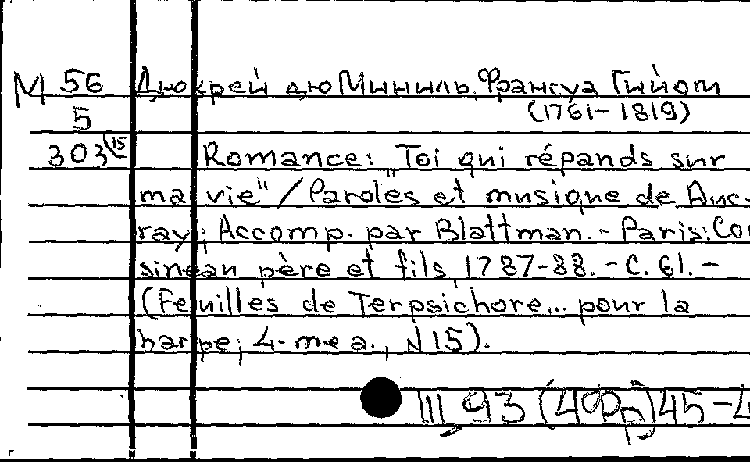 М 56 Дюкрей дю Миниль, Франсуа Гийом
5 (1761-1819)
303(15 Romance: "Toi qui répands sur
ma vie" / Paroles et musique de Duc-
ray; Accomp. par Blattman. - Paris: Cou
sineau père et fils, 1787-88. - C. 61. -
(Feuilles de Terpsichore... pour la
harpe; 4-me a., N 15).
III,93 (40Рр) 45-4